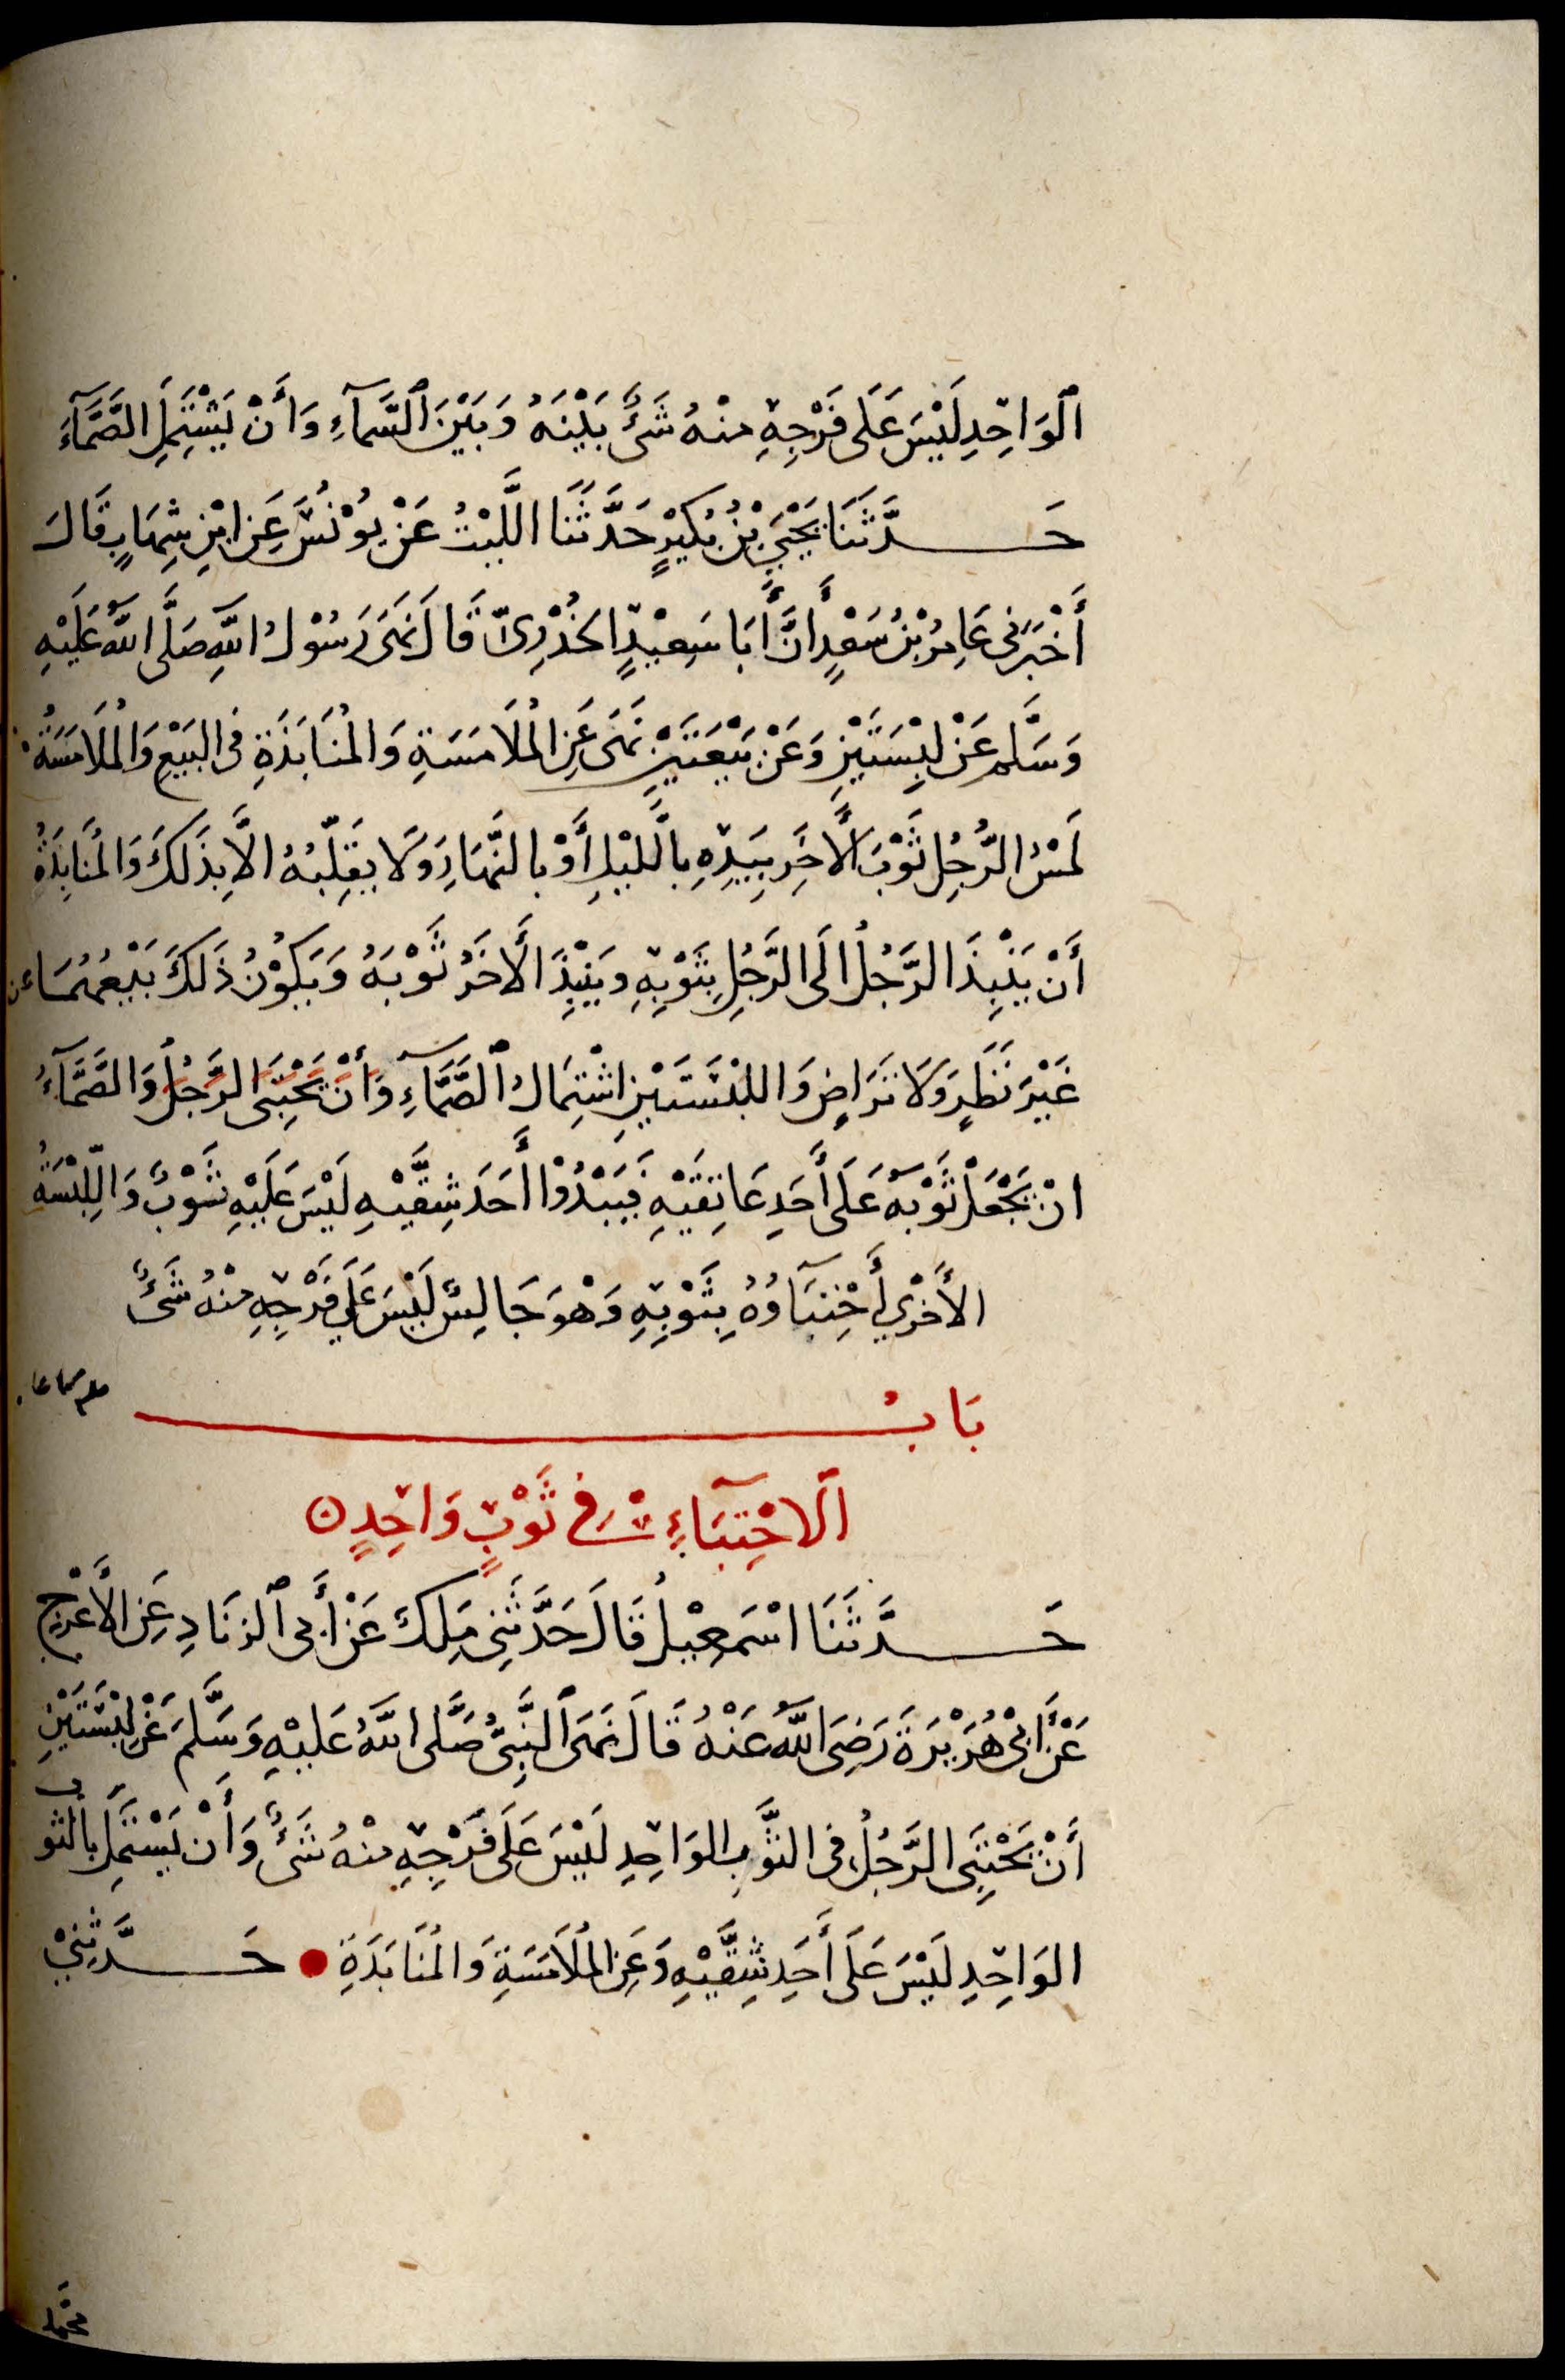 ٱلوَاحِدِ لَيْسَ عَلَى فَرْجِهِ مِنْهُ شَئٌ بَيْنَهُ وَبَيْنَ ٱلسَّمَآءِ وَأَنْ يَشْتَمِلَ الصَّمَّآءَ
حَدَّثَنَا يَحْيَى بْنُ بُكَيْرٍ حَدَّثَنَا اللَّيْثُ عَنْ يُوْنُسَ عَنِ ابْنِ شِهَابٍ قَالَ
أَخْبَرَنِى عَامِرُ بْنُ سَعْدٍ أَنَّ أَبَا سَعِيْدٍ الخُدْرِىَّ قَالَ نَهَى رَسُوْلُ اللَّهِ صَلَّى اللَّهُ عَلَيْهِ
وَسَلَّم عَنْ لِبْسَتَيْنِ وَعَنْ بَيْعَتَيْنِ نَهَى عَنِ المُلَامَسَةِ وَالمُنَابَذَةِ فى البَيْعِ وَالمُلَامَسَةُ
لَمْسُ الرَّجُلِ ثَوْبَ الْأَخَرِ بِيَدِهِ بِاللَّيْلِ أَوْ بِالنَّهَارِ وَلَا يُقَلِّبُهُ الَّا بِذَلكَ وَالمُنَابَذَةُ
أَنْ يَنْبِذَ الرَّجُلُ الَى الرَّجُلِ بِثَوْبِهِ وَيَنْبِذَ الْأَخَرُ ثَوْبَهُ وَيَكُوْنُ ذَلكَ بَيْعَهُمَا عن
غَيْرِ نَظَرٍ وَلَا تَرَاضٍ وَاللِّبْسَتَيْنِ اشْتِمَالُ ٱلصَّمَّآءِ وَأَنْ يَحْتَبِىَ الرَّجُلُ وَالصَّمَّآءُ
انْ يَجْعَلَ ثَوْبَهُ عَلَى أَحَدِ عَاتِقَيْهِ فَيَبْدُوْا أَحَدَ شِقَّيْهِ لَيْسَ عَلَيْهِ ثَوْبٌ وَاللِّبْسَةُ
الأُخْرَى احْتِبَآوُهُ بِثَوْبِهِ وَهْوَ جَالِسٌ لَيْسَ عَلَى فَرْجِهِ مِنْهُ شَئٌ
بَابُ
ٱلاحْتِبَآءِ فى ثَوْبٍ وَاحِدٍ
حَدَّثَنَا اسْمَعِيْلُ قَالَ حَدَّثَنِى مَلِكٌ عَنْ أَبى ٱلزنَادِ عَنِ الأَعْرَجِ
عَنْ أَبِى هُرَيْرَةَ رَضِىَ اللَّهُ عَنْهُ قَالَ نَهَى ٱلنَّبِىُّ صَلَّى اللَّهُ عَلَيْهِ وَسَلَّمَ عَنْ لِبْسَتَيْنِ
أَنْ يَحْتَبِىَ الرَّجُلُ فى الثَّوْبِ الوَاحِدِ لَيْسَ عَلَى فَرْجِهِ مِنْهُ شَئٌ وَأَنْ يَشْتَمِلَ بِالثَّوبِ
الوَاحِدِ لَيْسَ عَلَى أَحَدِ شِقَّيْهِ وَعَنِ المُلَامَسَةِ وَالمُنَابَذَةِ حَدَّثَنِيْ
محمَّد